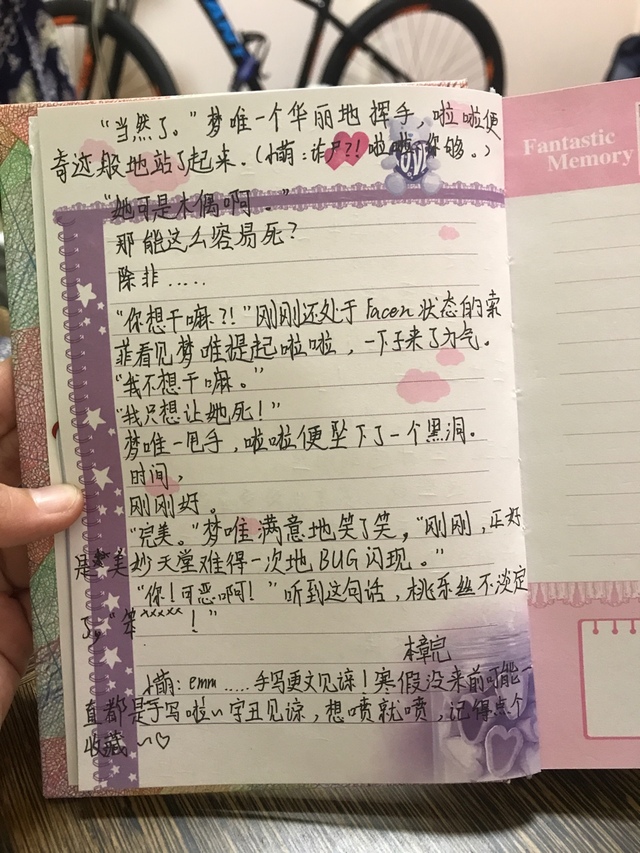 "当然了。"梦唯一个华丽地挥手，啦啦便
奇迹般地站了起来.(小萌:诈尸?!啦啦:你够。)
"她可是木偶啊。"
那能这么容易死?
除非.....
"你想干嘛?!"刚刚还处于Facen状态的索
菲看见梦唯提起啦啦，一下子来了力气。
"我不想干嘛。"
"我只想让她死!"
梦唯一甩手，啦啦便坠下了一个黑洞。
时间，
刚刚好。
"完美。"梦唯满意地笑了笑，"刚刚，正好
是美妙天堂难得一次地BUG闪现。"
"你!可恶啊!"听到这句话，桃乐丝不淡定
了,"笨*****!"
本章完
小萌:emm.....手写更文见谅!寒假没来前可能一
直都是手写啦~字丑见谅，想喷就喷，记得点个
收藏~♡
Fantastic
Memory
GIANT